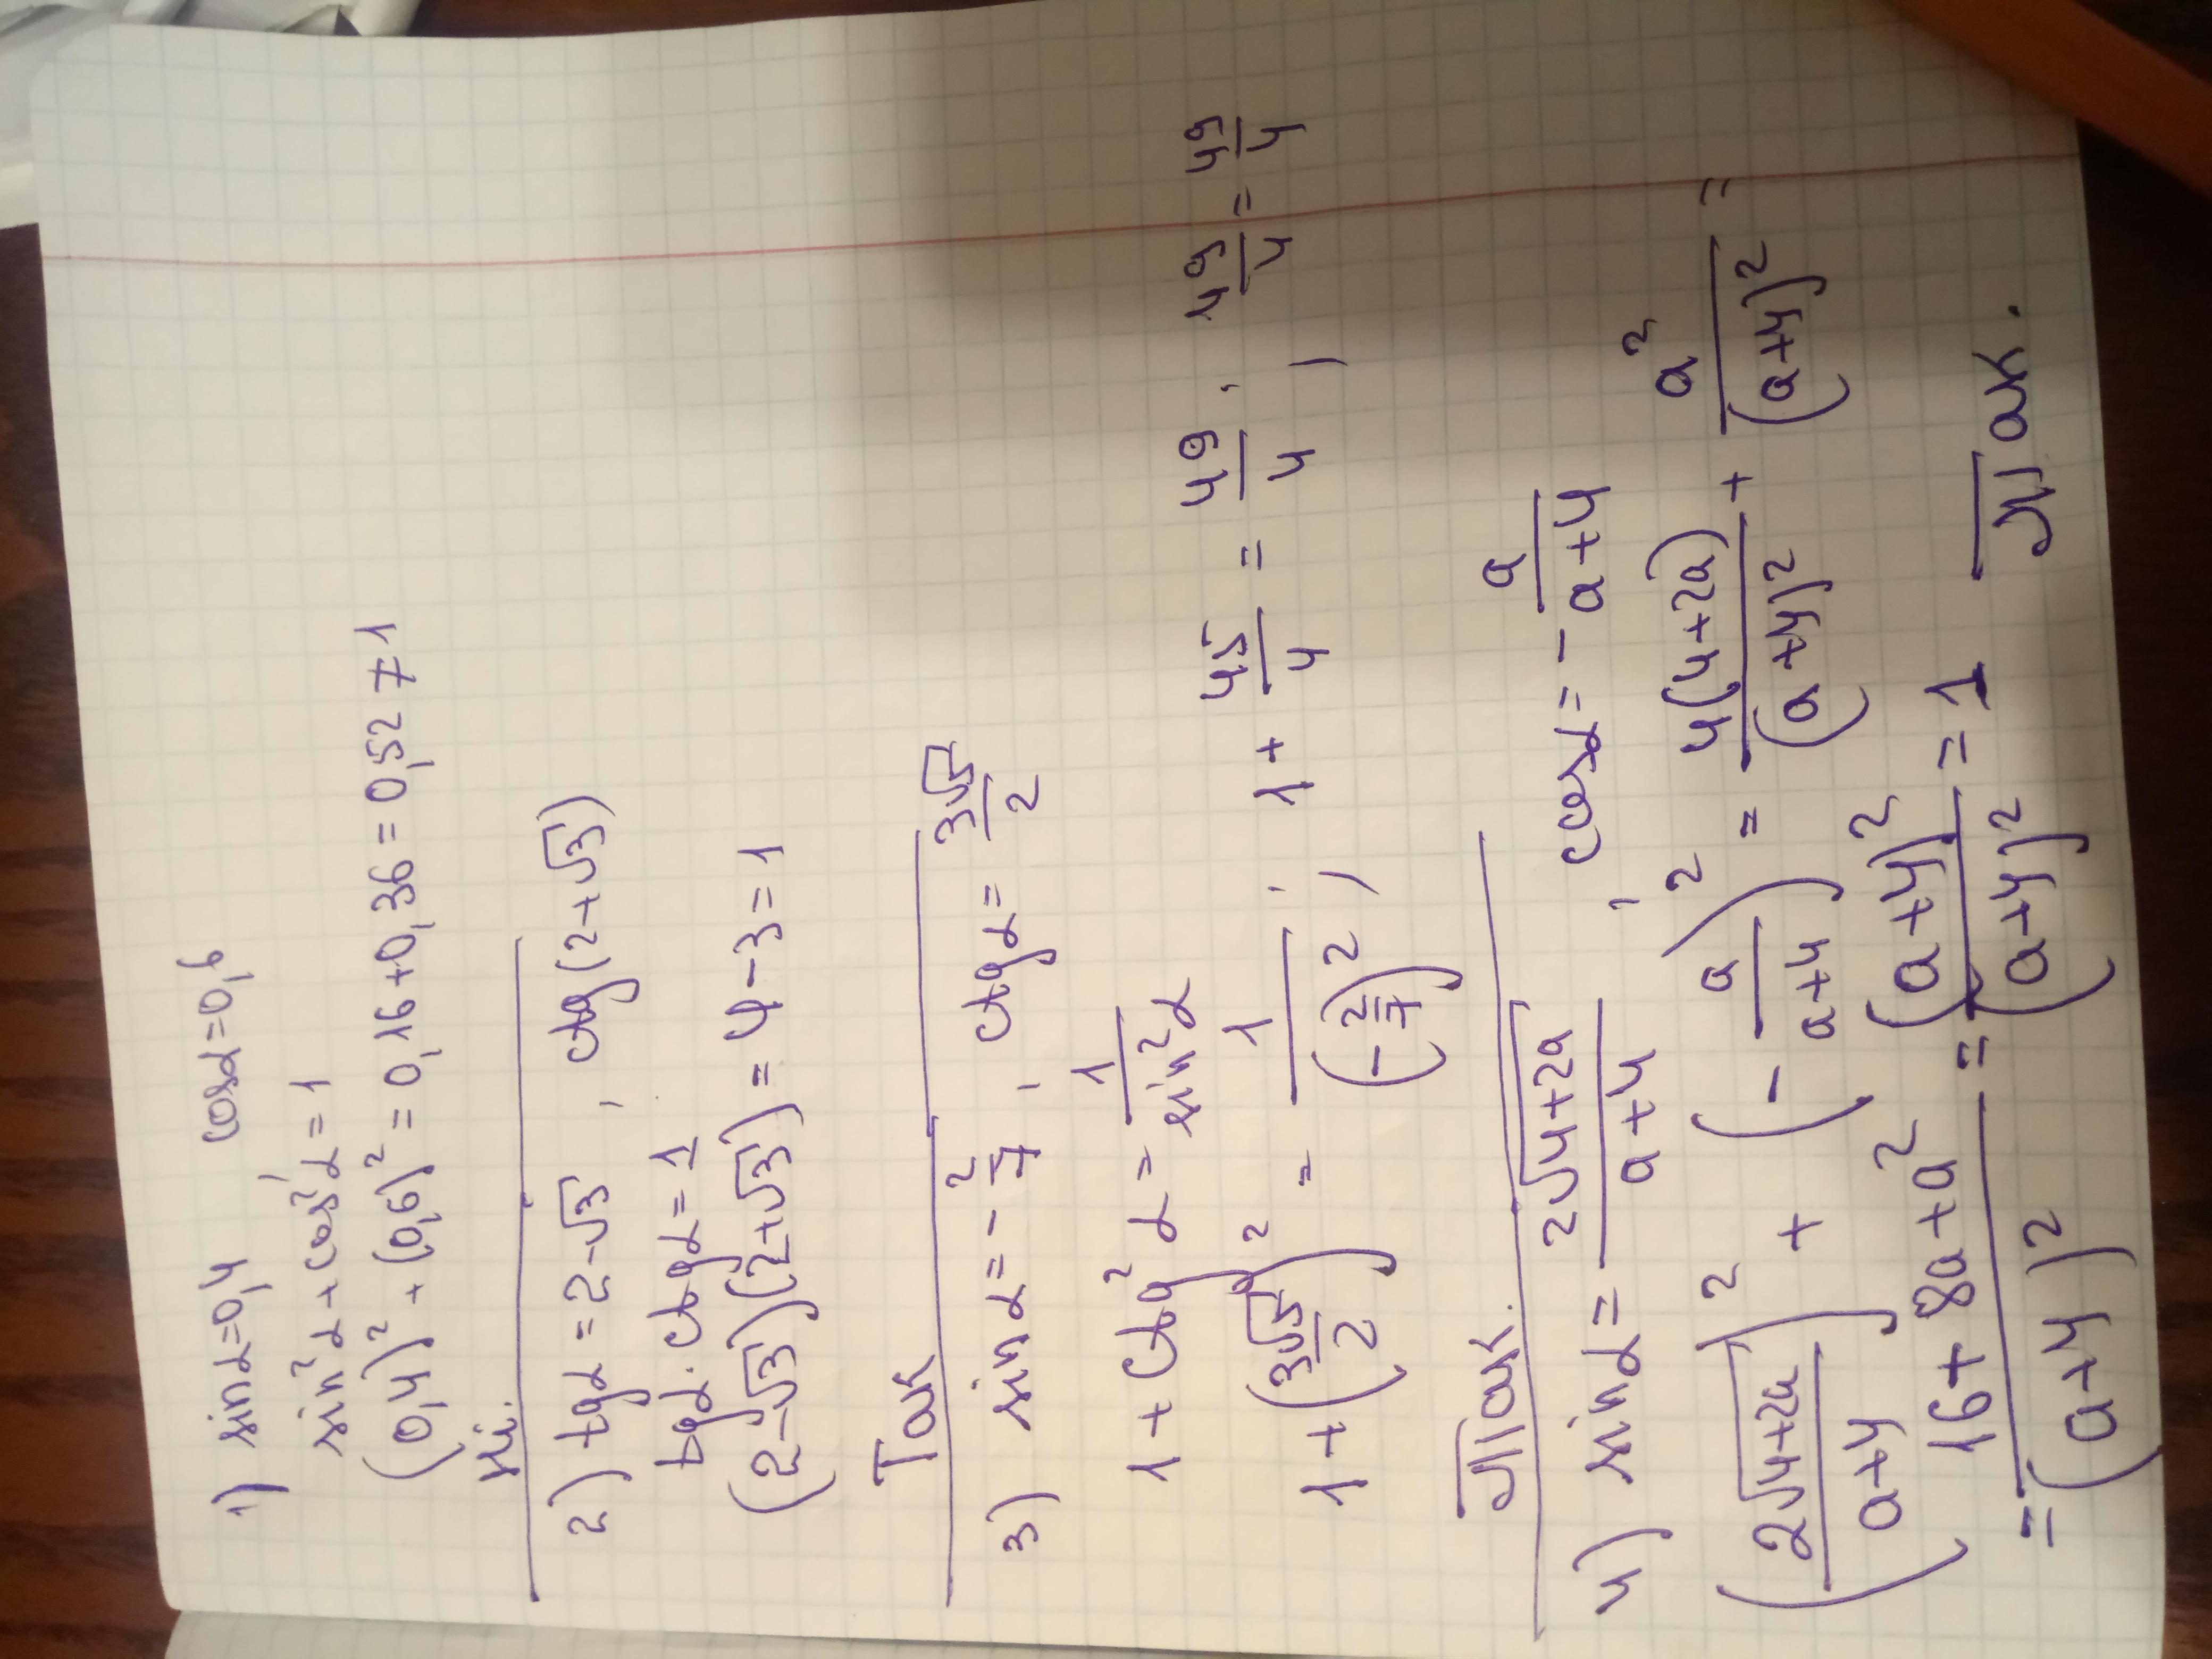 1) sinα=0,4 cosα=0,6
sin²α+cos²α=1
(0,4)²+(0,6)²=0,16+0,36=0,52≠1
Ні.
2) tgα=2-√3, ctg(2+√3)
tgα·ctgα=1
(2-√3)(2+√3)=4-3=1
Так
3) sinα=-2/7, ctgα=3√5/2
1+ctg²α=1/sin²α
1+(3√5/2)²=1/(-2/7)²; 1+45/4=49/4; 49/4=49/4
Так.
4) sinα=2√4+2a/a+4, cosα=-a/a+4
(2√4+2a/a+4)²+(-a/a+4)²=4(4+2a)/(a+4)²+a²/(a+4)²=
=16+8a+a²/(a+4)²=(a+4)²/(a+4)²=1 Так.